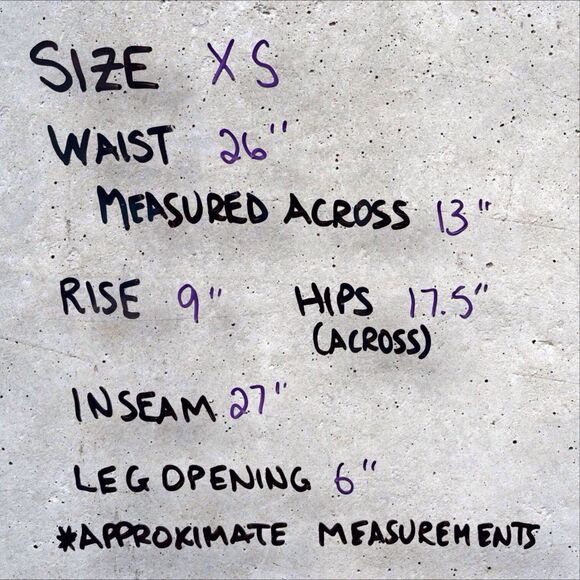 SIZE XS
WAIST 26"
MEASURED ACROSS 13"
RISE 9" HIPS 17.5"
(ACROSS)
INSEAM 27"
LEG OPENING 6"
*APPROXIMATE MEASUREMENTS